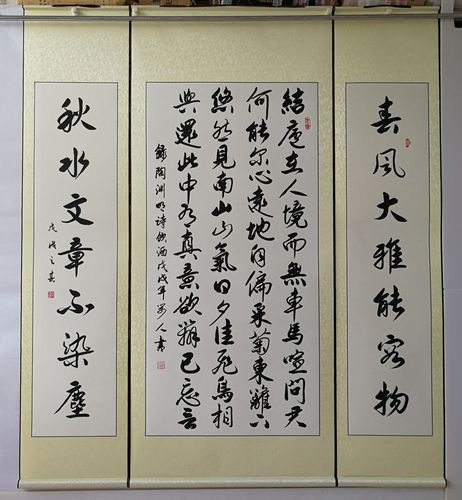 春風大雅能容物
結廬在人境而無車馬喧問君
何能尔心遠地自偏采菊東籬下
悠然見南山山氣日夕佳飛鳥相
與還此中有真意欲辯已忘言
錄陶淵明詩飲酒戊戌年人書
秋水文章不染塵
戊戌之春